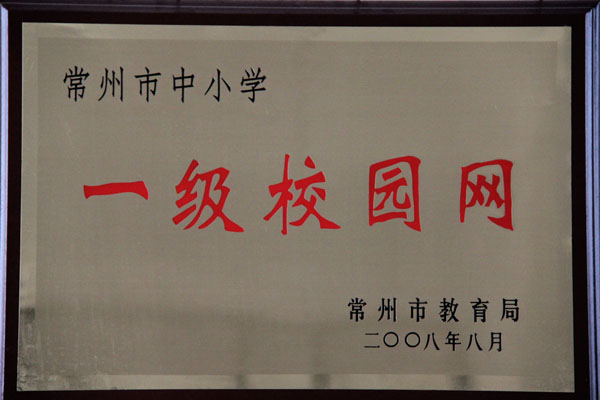 常州市中小学
一级校园网
常州市教育局
二〇〇八年八月